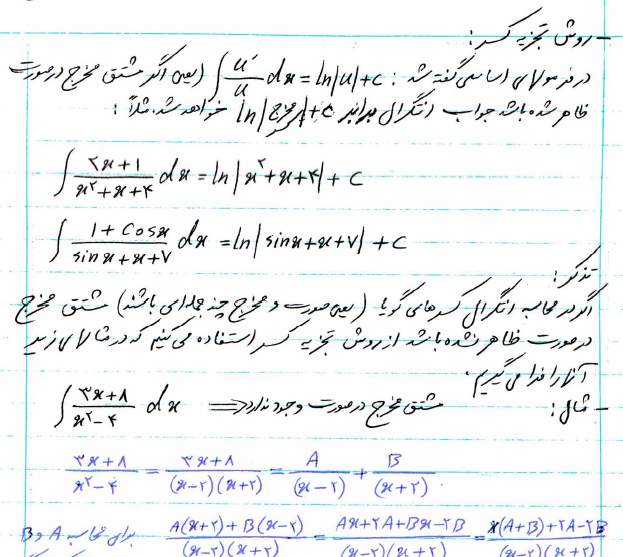 - روش تجزیه کسر:
در فرمولهای اساسی گفته شد: ∫ u'/u du = ln|u|+c (یعنی اگر مشتق مخرج در صورت
ظاهر شده باشد جواب انتگرال برابر ln|مخرج|+c خواهد شد. مثلاً:
∫ (۲x+1)/(x²+x+۴) dx = ln|x²+x+۴| + c
∫ (1+Cosx)/(sinx+x+۷) dx = ln|sinx+x+۷| + c
تذکر:
اگر در محاسبه انتگرال کسرهای گویا (یعنی صورت و مخرج چند جمله‌ای باشند) مشتق مخرج
در صورت ظاهر نشده باشد از روش تجزیه کسر استفاده می‌کنیم که در مثالهای زیر
آنها را فرا می‌گیریم.
- مثال: ∫ (۳x+۸)/(x²-۴) dx ⇐ مشتق مخرج در صورت وجود ندارد
(۳x+۸)/(x²-۴) = (۳x+۸)/((x-۲)(x+۲)) = A/(x-۲) + B/(x+۲)
برای محاسبه A و B (A(x+۲)+B(x-۲))/((x-۲)(x+۲)) = (Ax+۲A+Bx-۲B)/((x-۲)(x+۲)) = (x(A+B)+۲A-۲B)/((x-۲)(x+۲))